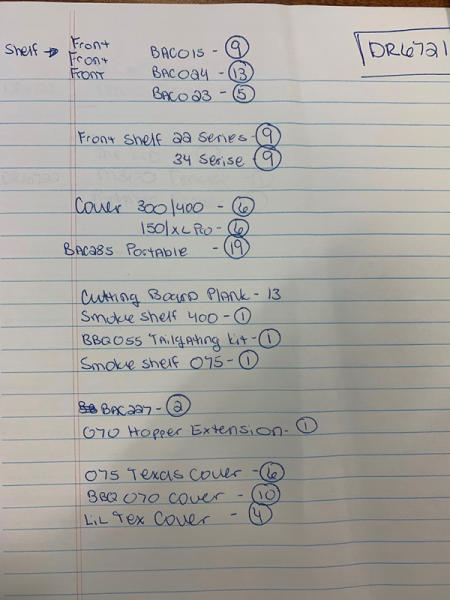 DR6721
Shelf → Front BAC015 - 9
Front
Front BAC024 - 13
BAC023 - 5
Front Shelf 22 Series - 9
34 Serise - 9
Cover 300/400 - 6
150/XL Pro - 6
BAC285 Portable - 19
Cutting Board Plank - 13
Smoke Shelf 400 - 1
BBQ055 Tailgating Kit - 1
Smoke Shelf 075 - 1
BAC227 - 2
070 Hopper Extension - 1
075 Texas Cover - 6
BBQ 070 Cover - 10
LiL Tex Cover - 4